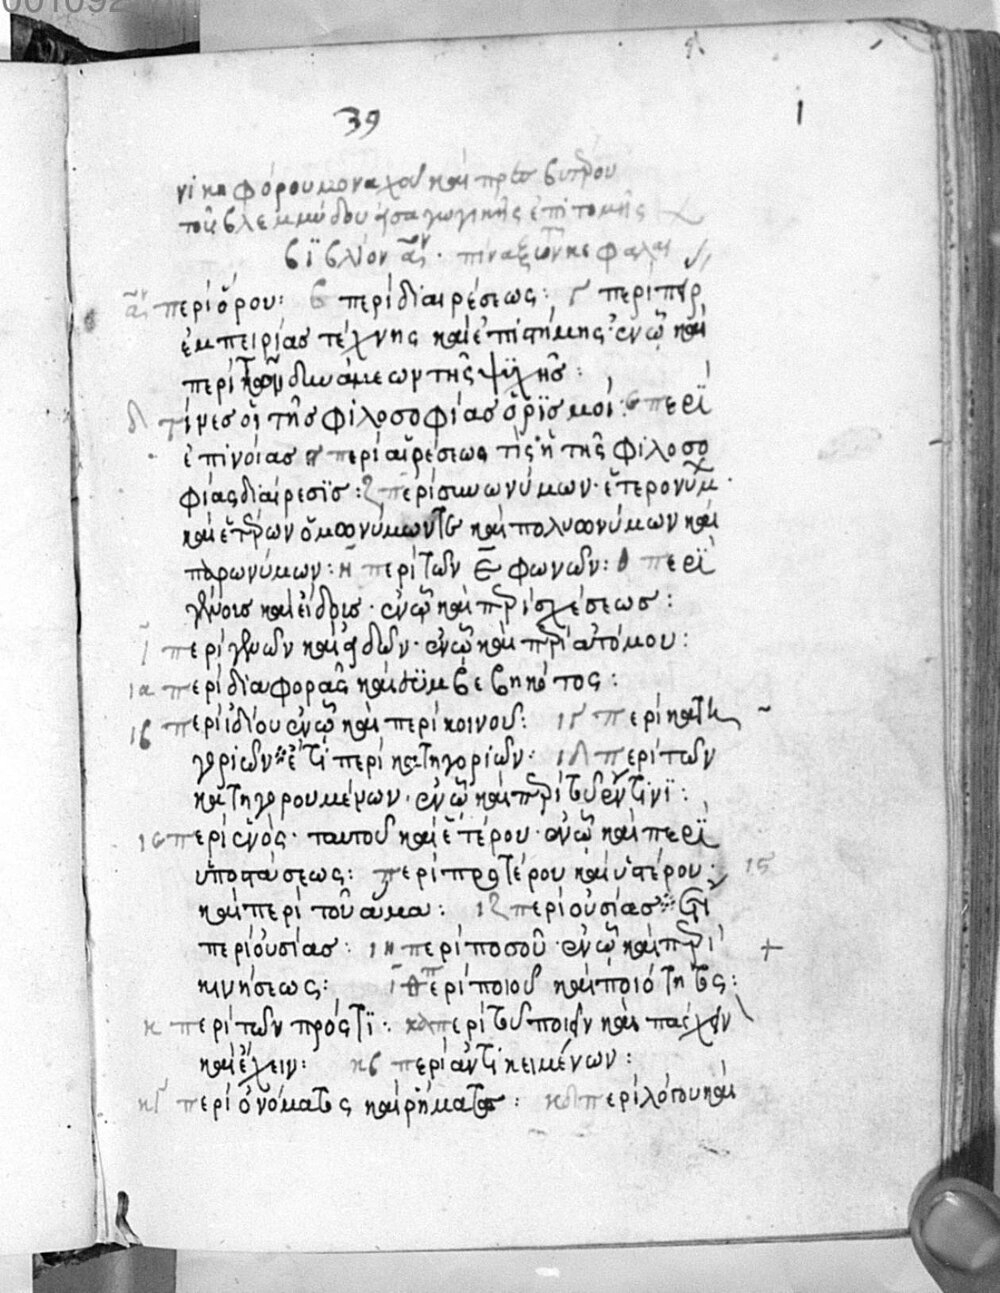 001092
39
1
νικηφόρου μοναχοῦ καὶ πρεσβυτέρου
τοῦ βλεμμύδου εἰσαγωγικῆς ἐπιτομῆς
βιβλίον αον· πίναξ τῶν κεφαλαι
αον περὶ ὅρου: β περὶ διαιρέσεως: γ περὶ πειρ
ἐμπειρίας τέχνης καὶ ἐπιστήμης· ἐν ᾧ καὶ
περὶ τῶν δυνάμεων τῆς ψυχῆς:
δ τίνες οἱ τῆς φιλοσοφίας ὁρισμοί: ε περὶ
ἐπινοίας περὶ αἱρέσεως τίς ἡ τῆς φιλοσο
φίας διαίρεσις: ζ περὶ συνωνύμων· ἑτερονύμ·
καὶ ἑτέρων ὁμωνύμων τε καὶ πολυωνύμων καὶ
παρωνύμων: η περὶ τῶν ε φωνῶν: θ περὶ
γένους καὶ εἴδους· ἐν ᾧ καὶ περὶ σχέσεως:
ι περὶ γενῶν καὶ εἰδῶν· ἐν ᾧ καὶ περὶ ἀτόμου:
ια περὶ διαφορᾶς καὶ συμβεβηκότος:
ιβ περὶ ἰδίου ἐν ᾧ καὶ περὶ κοινοῦ: ιγ περὶ κατη
γοριῶν ἔτι περὶ κατηγοριῶν· ιδ περὶ τῶν
κατηγορουμένων· ἐν ᾧ καὶ περὶ τοῦ ἔν τινι:
ιε περὶ ἑνὸς· ταυτοῦ καὶ ἑτέρου· ἐν ᾧ καὶ περὶ
ὑποστάσεως: περὶ προτέρου καὶ ὑστέρου· ιϛ
καὶ περὶ τοῦ ἅμα: ιζ περὶ οὐσίας ἔτι
περὶ οὐσίας: ιη περὶ ποσοῦ· ἐν ᾧ καὶ περὶ +
κινήσεως: ιθ περὶ ποιοῦ καὶ ποιότητος:
κ περὶ τῶν πρός τι: κα περὶ τοῦ ποιεῖν καὶ πάσχειν
καὶ ἔχειν: κβ περὶ ἀντικειμένων:
κγ περὶ ὀνόματος καὶ ῥήματος: κδ περὶ λόγου καὶ